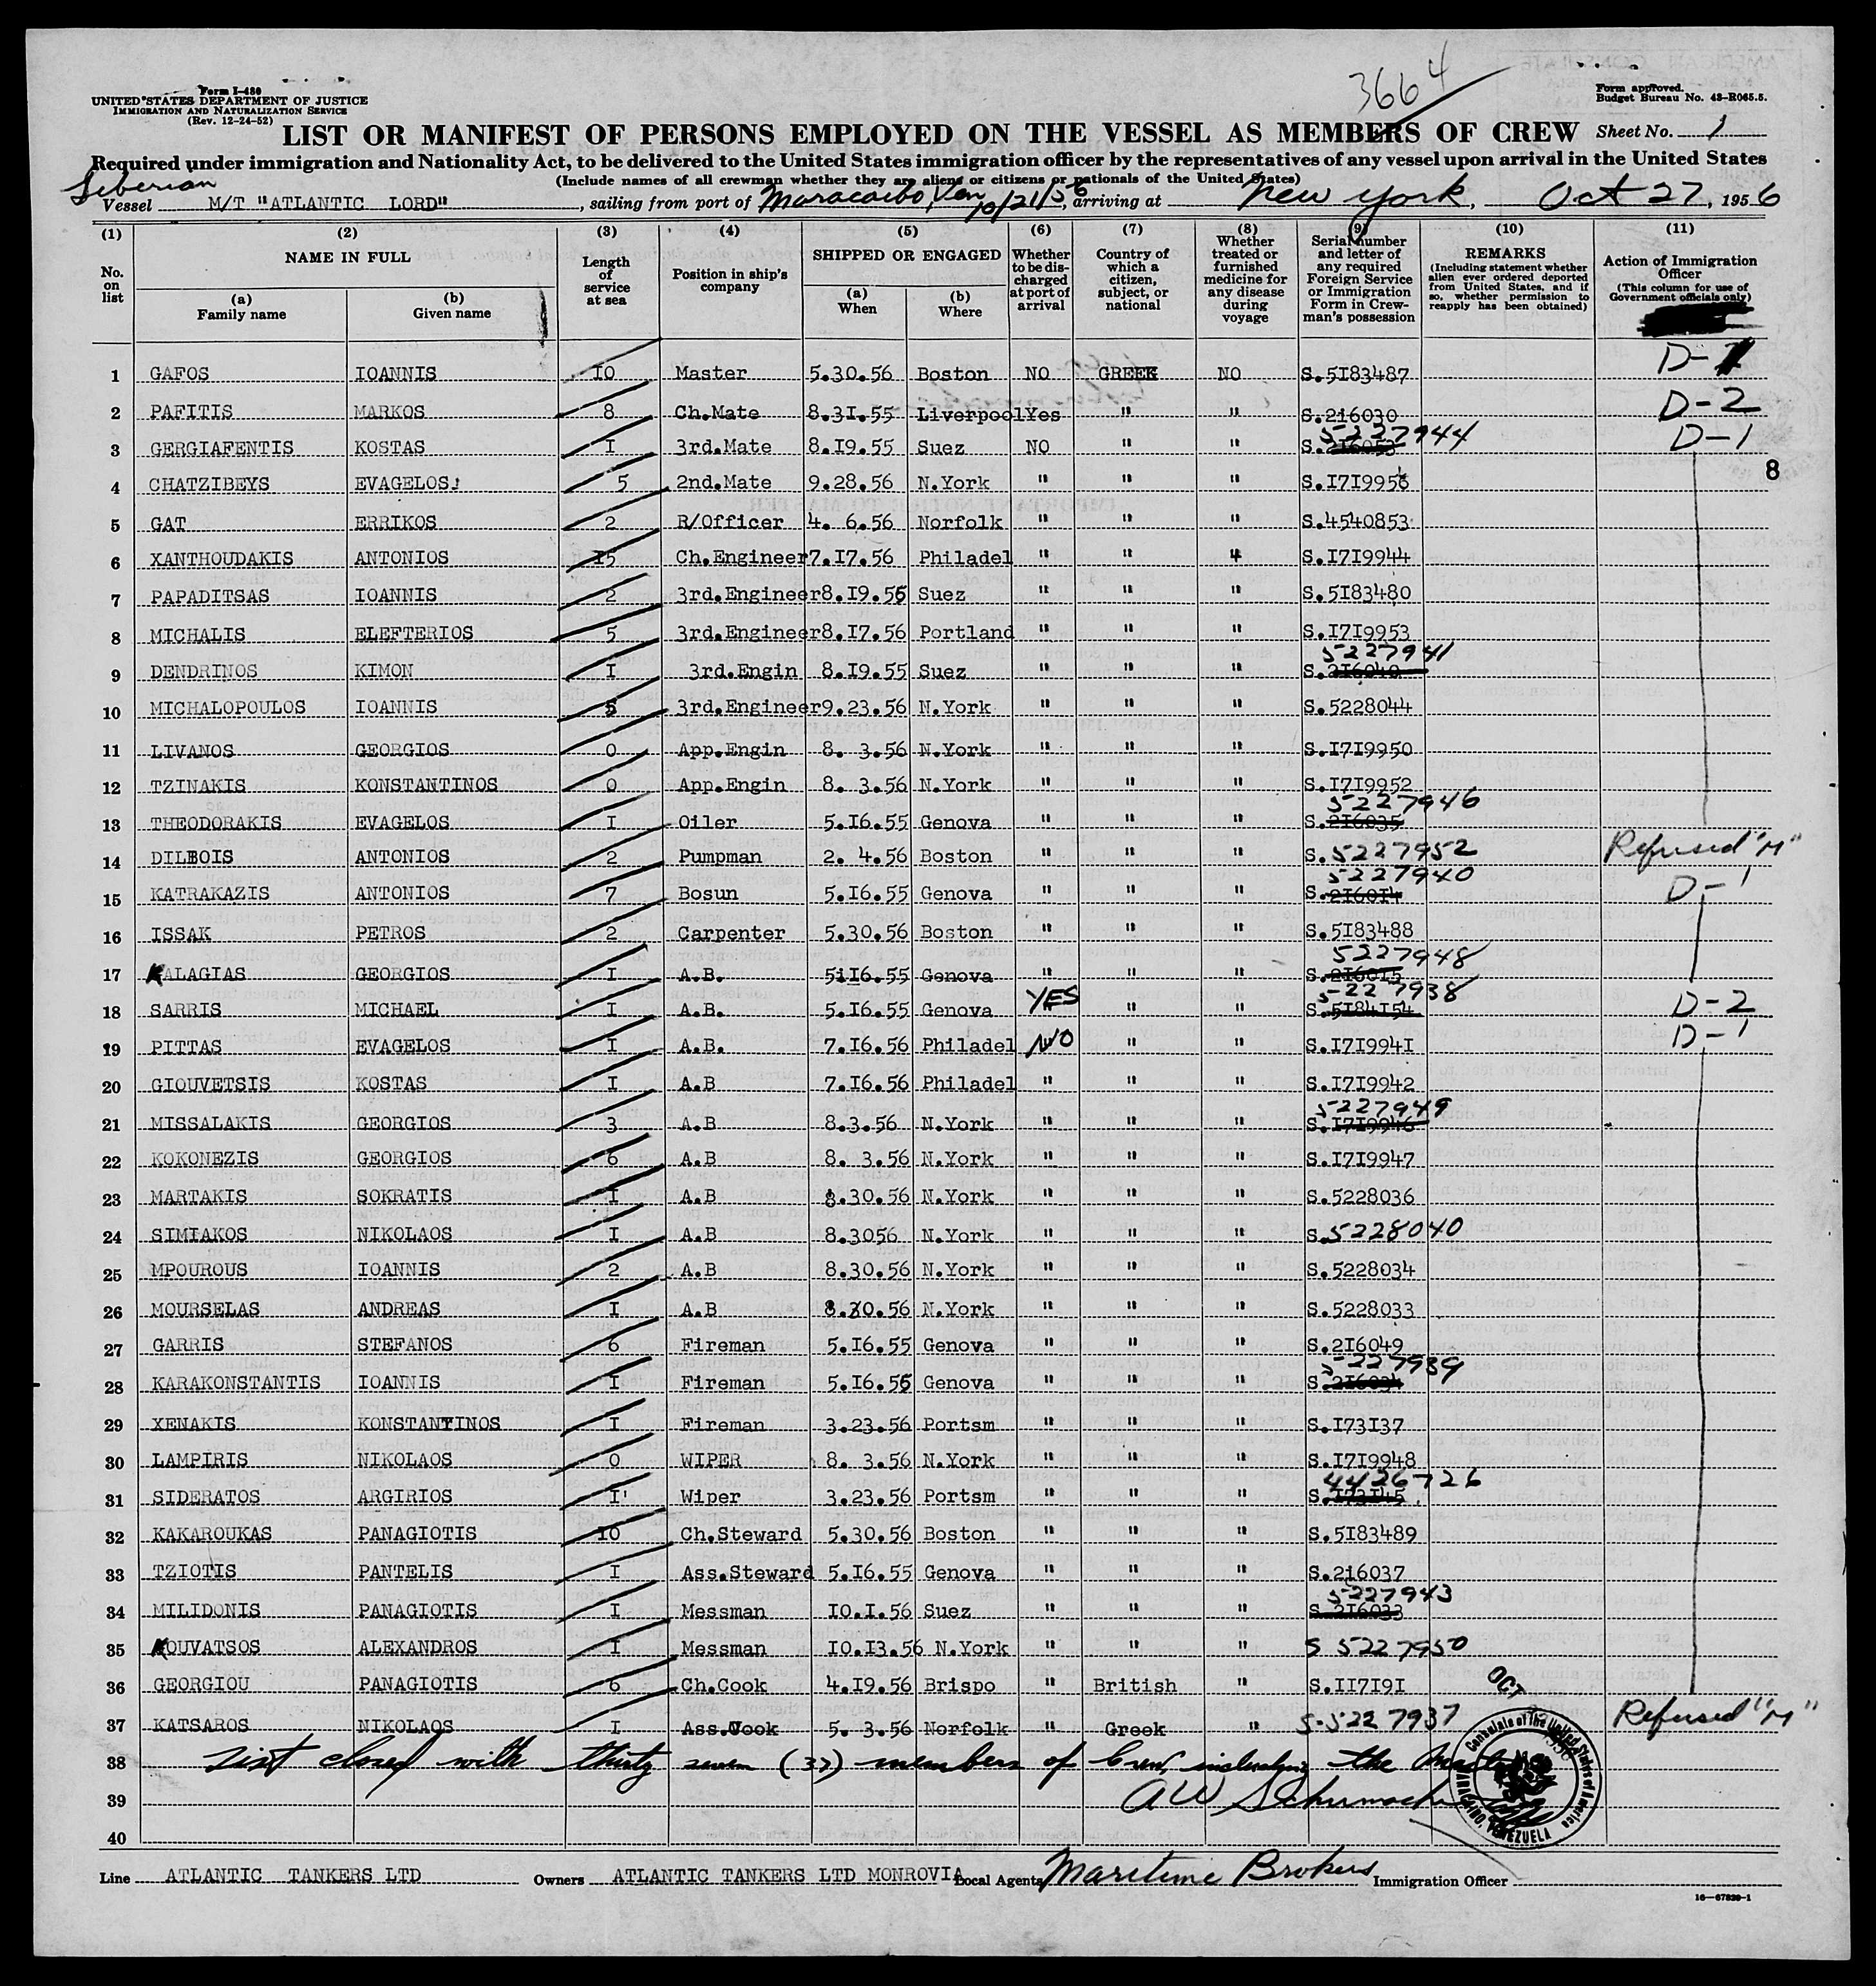 3664
Form I-480
UNITED STATES DEPARTMENT OF JUSTICE
IMMIGRATION AND NATURALIZATION SERVICE
(Rev. 12-24-52)
Form approved.
Budget Bureau No. 43-R065.5.
LIST OR MANIFEST OF PERSONS EMPLOYED ON THE VESSEL AS MEMBERS OF CREW Sheet No. 1
Required under immigration and Nationality Act, to be delivered to the United States immigration officer by the representatives of any vessel upon arrival in the United States
(Include names of all crewman whether they are aliens or citizens or nationals of the United States)
Liberian
Vessel M/T "ATLANTIC LORD", sailing from port of Maracaibo, Ven 10/21/56, arriving at New York, Oct 27, 1956
(1) No. on list
(2) NAME IN FULL
(a) Family name
(b) Given name
(3) Length of service at sea
(4) Position in ship's company
(5) SHIPPED OR ENGAGED
(a) When
(b) Where
(6) Whether to be discharged at port of arrival
(7) Country of which a citizen, subject, or national
(8) Whether treated or furnished medicine for any disease during voyage
(9) Serial number and letter of any required Foreign Service or Immigration Form in Crewman's possession
(10) REMARKS (Including statement whether alien ever ordered deported from United States, and if so, whether permission to reapply has been obtained)
(11) Action of Immigration Officer (This column for use of Government officials only)
1 GAFOS IOANNIS IO Master 5.30.56 Boston NO GREEK NO S.5I83487 D-1
2 PAFITIS MARKOS 8 Ch.Mate 8.3I.55 Liverpool Yes " " S.216030 D-2
3 GERGIAFENTIS KOSTAS I 3rd.Mate 8.I9.55 Suez NO " " S.216053 5227944 D-1
8
4 CHATZIBEYS EVAGELOS 5 2nd.Mate 9.28.56 N.York " " " S.I7I9956
5 GAT ERRIKOS 2 R/Officer 4. 6.56 Norfolk " " " S.4540853
6 XANTHOUDAKIS ANTONIOS I5 Ch.Engineer 7.I7.56 Philadel " " " S.I7I9944
7 PAPADITSAS IOANNIS 2 3rd.Engineer 8.I9.55 Suez " " " S.5I83480
8 MICHALIS ELEFTERIOS 5 3rd.Engineer 8.I7.56 Portland " " " S.I7I9953
9 DENDRINOS KIMON I 3rd.Engin 8.I9.55 Suez " " " S.216040 5227941
10 MICHALOPOULOS IOANNIS 5 3rd.Engineer 9.23.56 N.York " " " S.5228044
11 LIVANOS GEORGIOS 0 App.Engin 8. 3.56 N.York " " " S.I7I9950
12 TZINAKIS KONSTANTINOS 0 App.Engin 8. 3.56 N.York " " " S.I7I9952
13 THEODORAKIS EVAGELOS I Oiler 5.I6.55 Genova " " " S.216035 5227946
14 DILBOIS ANTONIOS 2 Pumpman 2. 4.56 Boston " " " S.5227952 Refused "M"
15 KATRAKAZIS ANTONIOS 7 Bosun 5.I6.55 Genova " " " S.216014 5227940 D-1
16 ISSAK PETROS 2 Carpenter 5.30.56 Boston " " " S.5I83488
17 KALAGIAS GEORGIOS I A.B. 5.I6.55 Genova " " " S.216015 5227948
18 SARRIS MICHAEL I A.B. 5.I6.55 Genova YES " " S.5I84I54 5227938 D-2
19 PITTAS EVAGELOS I A.B. 7.I6.56 Philadel NO " " S.I7I994I D-1
20 GIOUVETSIS KOSTAS I A.B 7.I6.56 Philadel " " " S.I7I9942
21 MISSALAKIS GEORGIOS 3 A.B 8.3.56 N.York " " " S.I7I9946 5227949
22 KOKONEZIS GEORGIOS 6 A.B 8. 3.56 N.York " " " S.I7I9947
23 MARTAKIS SOKRATIS I A.B 8.30.56 N.York " " " S.5228036
24 SIMIAKOS NIKOLAOS I A.B 8.3056 N.York " " " S.5228040
25 MPOUROUS IOANNIS 2 A.B 8.30.56 N.York " " " S.5228034
26 MOURSELAS ANDREAS I A.B 8.30.56 N.York " " " S.5228033
27 GARRIS STEFANOS 6 Fireman 5.I6.55 Genova " " " S.216049
28 KARAKONSTANTIS IOANNIS I Fireman 5.I6.55 Genova " " " S.216034 5227939
29 XENAKIS KONSTANTINOS I Fireman 3.23.56 Portsm " " " S.I73I37
30 LAMPIRIS NIKOLAOS 0 WIPER 8. 3.56 N.York " " " S.I7I9948
31 SIDERATOS ARGIRIOS I Wiper 3.23.56 Portsm " " " S.I73I45 4426726
32 KAKAROUKAS PANAGIOTIS IO Ch.Steward 5.30.56 Boston " " " S.5I83489
33 TZIOTIS PANTELIS I Ass.Steward 5.I6.55 Genova " " " S.216037
34 MILIDONIS PANAGIOTIS I Messman IO.I.56 Suez " " " S 216033 5227943
35 KOUVATSOS ALEXANDROS I Messman IO.I3.56 N.York " " " S 5227950
36 GEORGIOU PANAGIOTIS 6 Ch.Cook 4.I9.56 Brispo " British " S.II7I9I
37 KATSAROS NIKOLAOS I Ass.Cook 5. 3.56 Norfolk " Greek " S-5227937 Refused "M"
38 List closed with thirty seven (37) members of Crew, including the Master
39 A W Schumacher
40
OCT
Consulate of the United States of America
MARACAIBO, VENEZUELA
Line ATLANTIC TANKERS LTD Owners ATLANTIC TANKERS LTD MONROVIA Local Agents Maritime Brokers Immigration Officer
16-67839-1